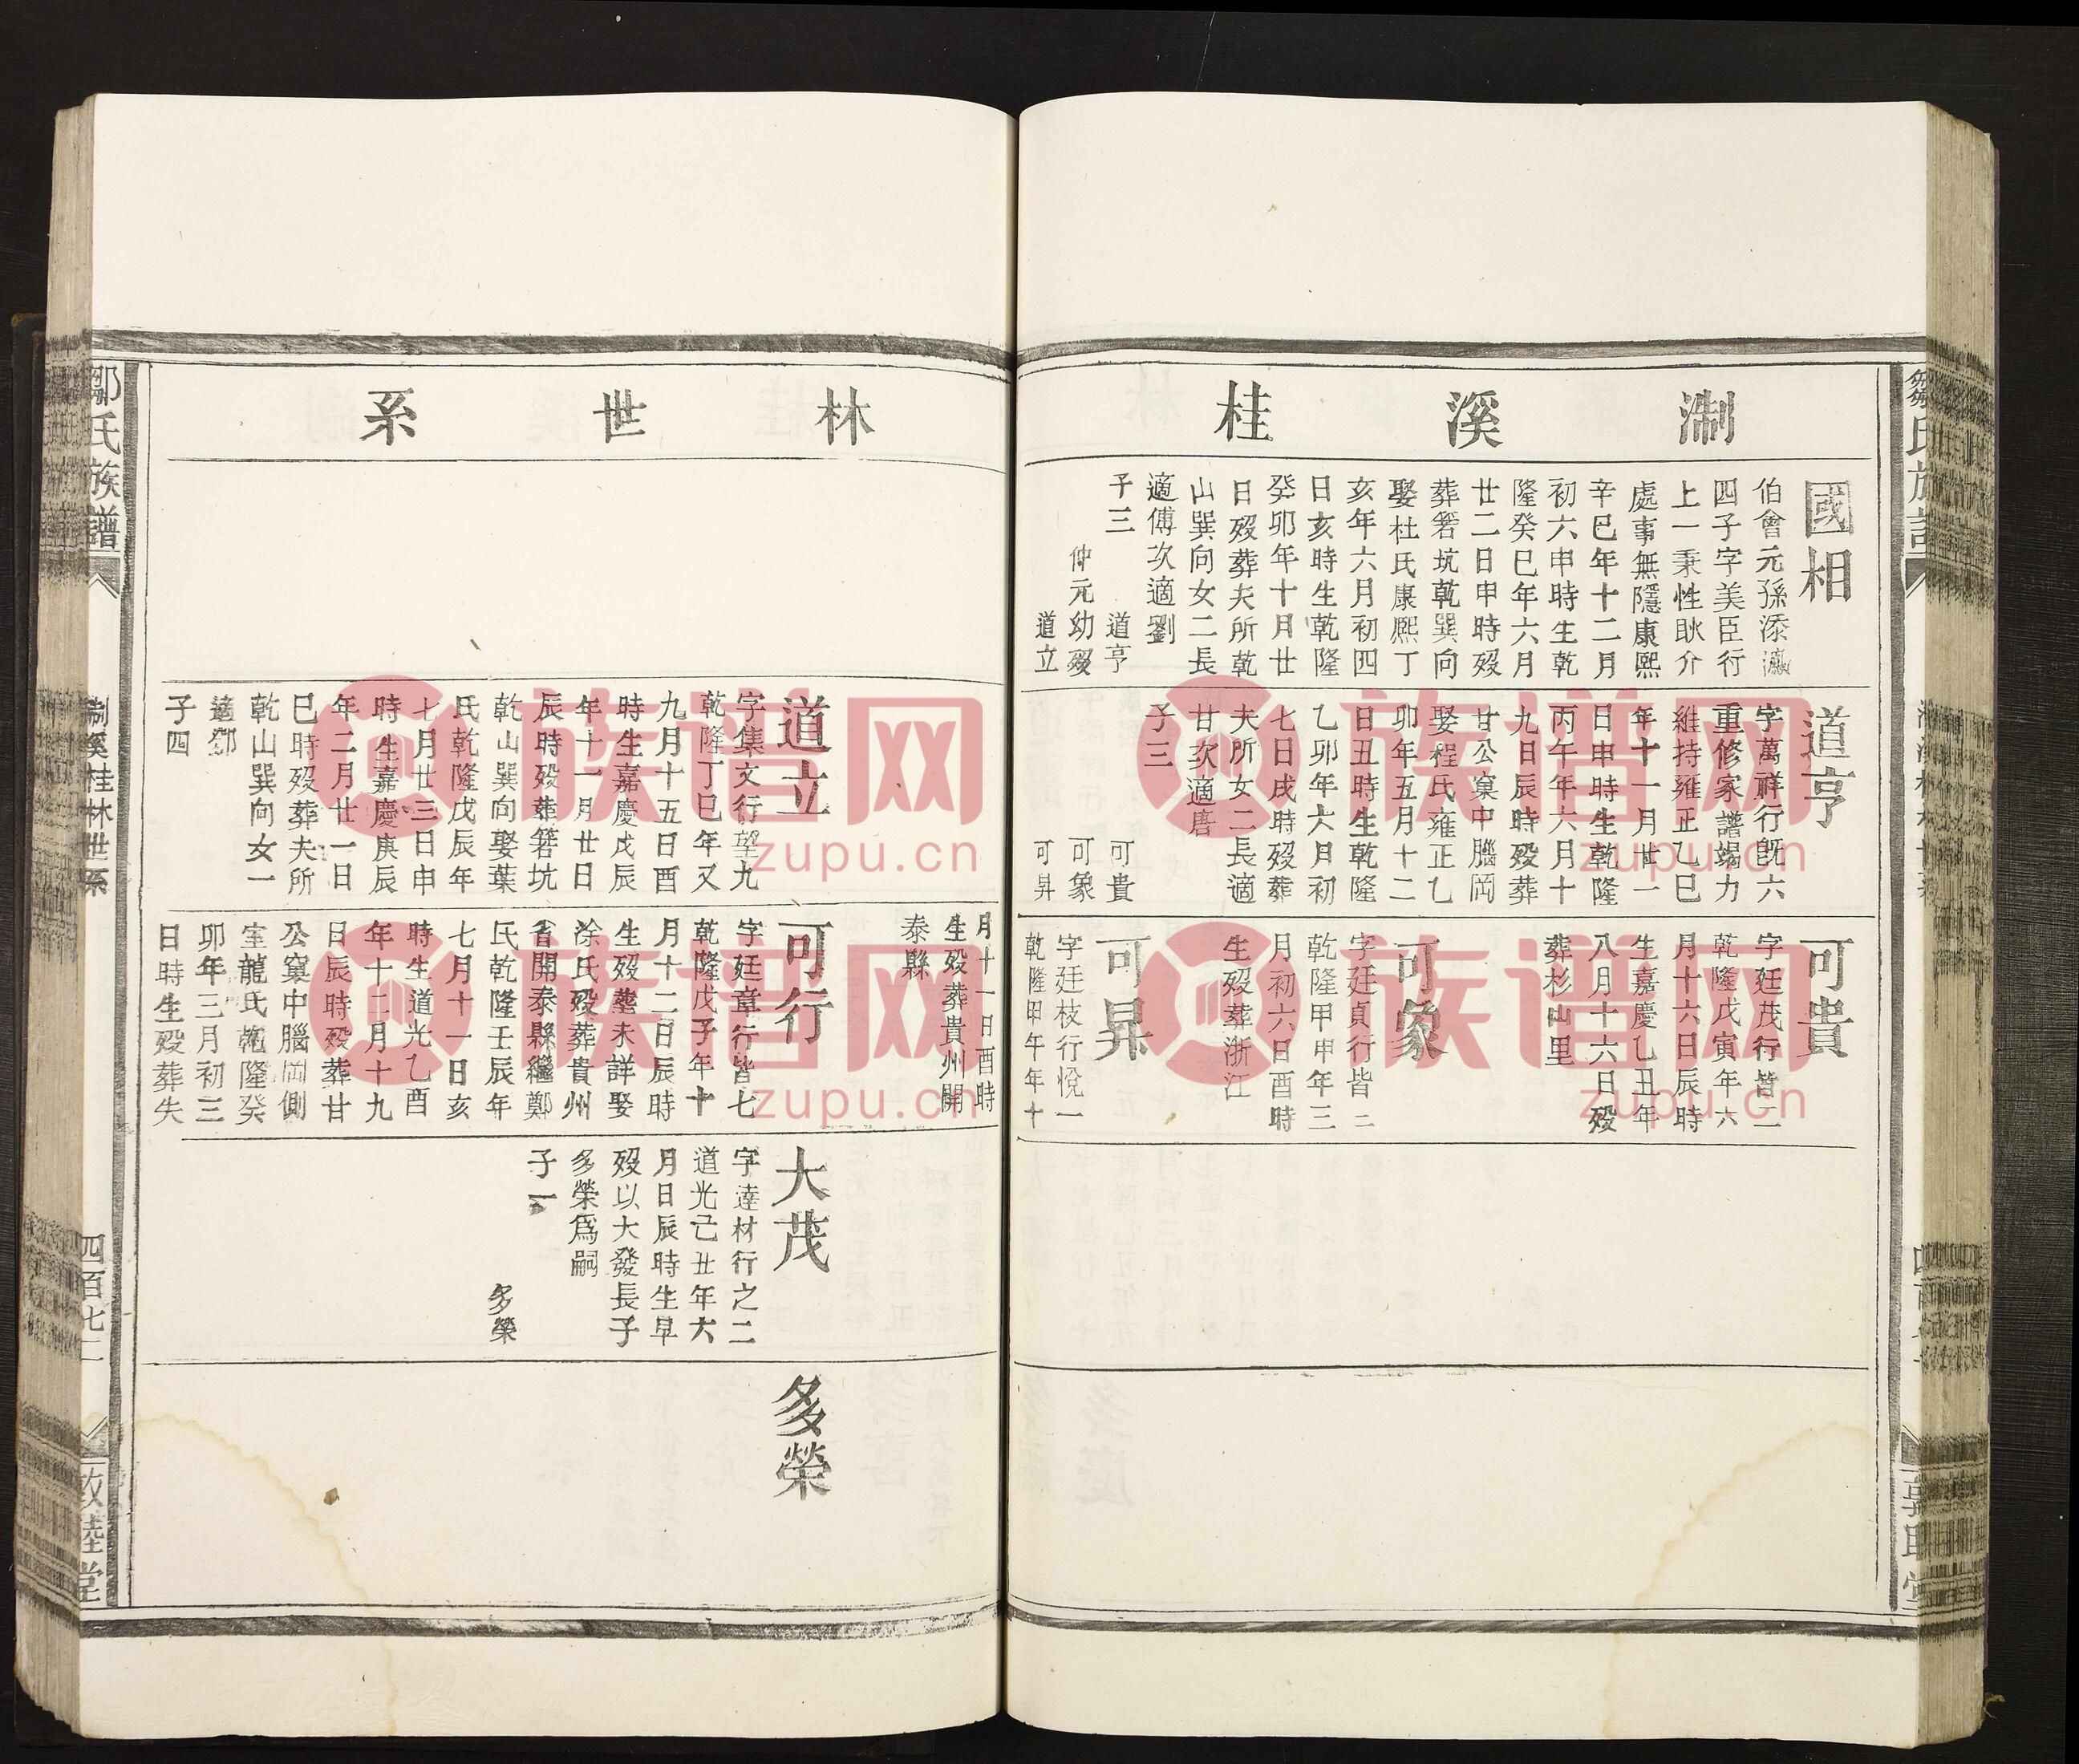 淛溪桂
國相
伯會元孫添瀛
四子字美臣行
上一秉性耿介
處事無隱康熙
辛巳年十二月
初六申時生乾
隆癸巳年六月
廿二日申時歿
葬箬坑乾巽向
娶杜氏康熙丁
亥年六月初四
日亥時生乾隆
癸卯年十月廿
日歿葬夫所乾
山巽向女二長
適傅次適劉
子三
道亨
仲元幼歿
道立
道亨
字萬祥行旣六
重修家譜竭力
維持雍正乙巳
年十一月廿一
日申時生乾隆
丙午年六月十
九日辰時歿葬
甘公窠中腦岡
娶程氏雍正乙
卯年五月十二
日丑時生乾隆
乙卯年六月初
七日戌時歿葬
夫所女二長適
甘次適唐
子三
可貴
可象
可昇
可貴
字廷茂行皆二
乾隆戊寅年六
月十六日辰時
生嘉慶乙丑年
八月十六日歿
葬杉山里
可象
字廷貞行皆二
乾隆甲申年三
月初六日酉時
生歿葬浙江
可昇
字廷枝行悅一
乾隆甲午年十
林世系
道立
字集文行望九
乾隆丁巳年又
九月十五日酉
時生嘉慶戊辰
年十一月廿日
辰時歿葬箬坑
乾山巽向娶葉
氏乾隆戊辰年
七月廿三日申
時生嘉慶庚辰
年二月廿一日
巳時歿葬夫所
乾山巽向女一
適鄧
子四
月十一日酉時
生歿葬貴州開
泰縣
可行
字廷章行皆七
乾隆戊子年十
月十二日辰時
生歿塟未詳娶
涂氏歿葬貴州
省開泰縣繼鄭
氏乾隆壬辰年
七月十一日亥
時生道光乙酉
年十二月十九
日辰時歿葬甘
公窠中腦岡側
室龍氏乾隆癸
卯年三月初三
日時生歿葬失
大茂
字達材行之二
道光己丑年六
月日辰時生早
歿以大發長子
多榮爲嗣
子一
多榮
多榮
鄒氏族譜
淛溪桂林世系
四百七二
敦睦堂
族谱网
zupu.cn
族谱网
zupu.cn
族谱网
zupu.cn
族谱网
zupu.cn